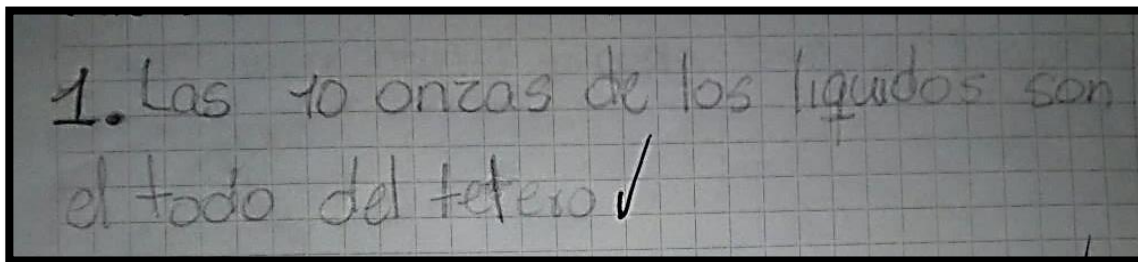 1. Las 10 onzas de los liquidos son
el todo del tetero ✓